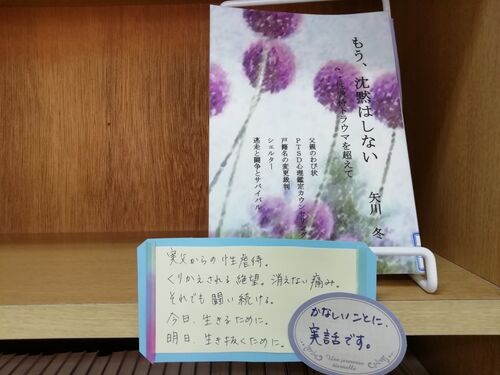 もう、沈黙はしない
トラウマを超えて
矢川 冬
父親のわび状
PTSD心理鑑定カウンセリング
戸籍名の変更裁判
シェルター
迷走と闘争とサバイバル
実父からの性虐待。
くりかえされる絶望。消えない痛み。
それでも闘い続ける。
今日、生きるために。
明日、生き抜くために。
かなしいことに、
実話です。